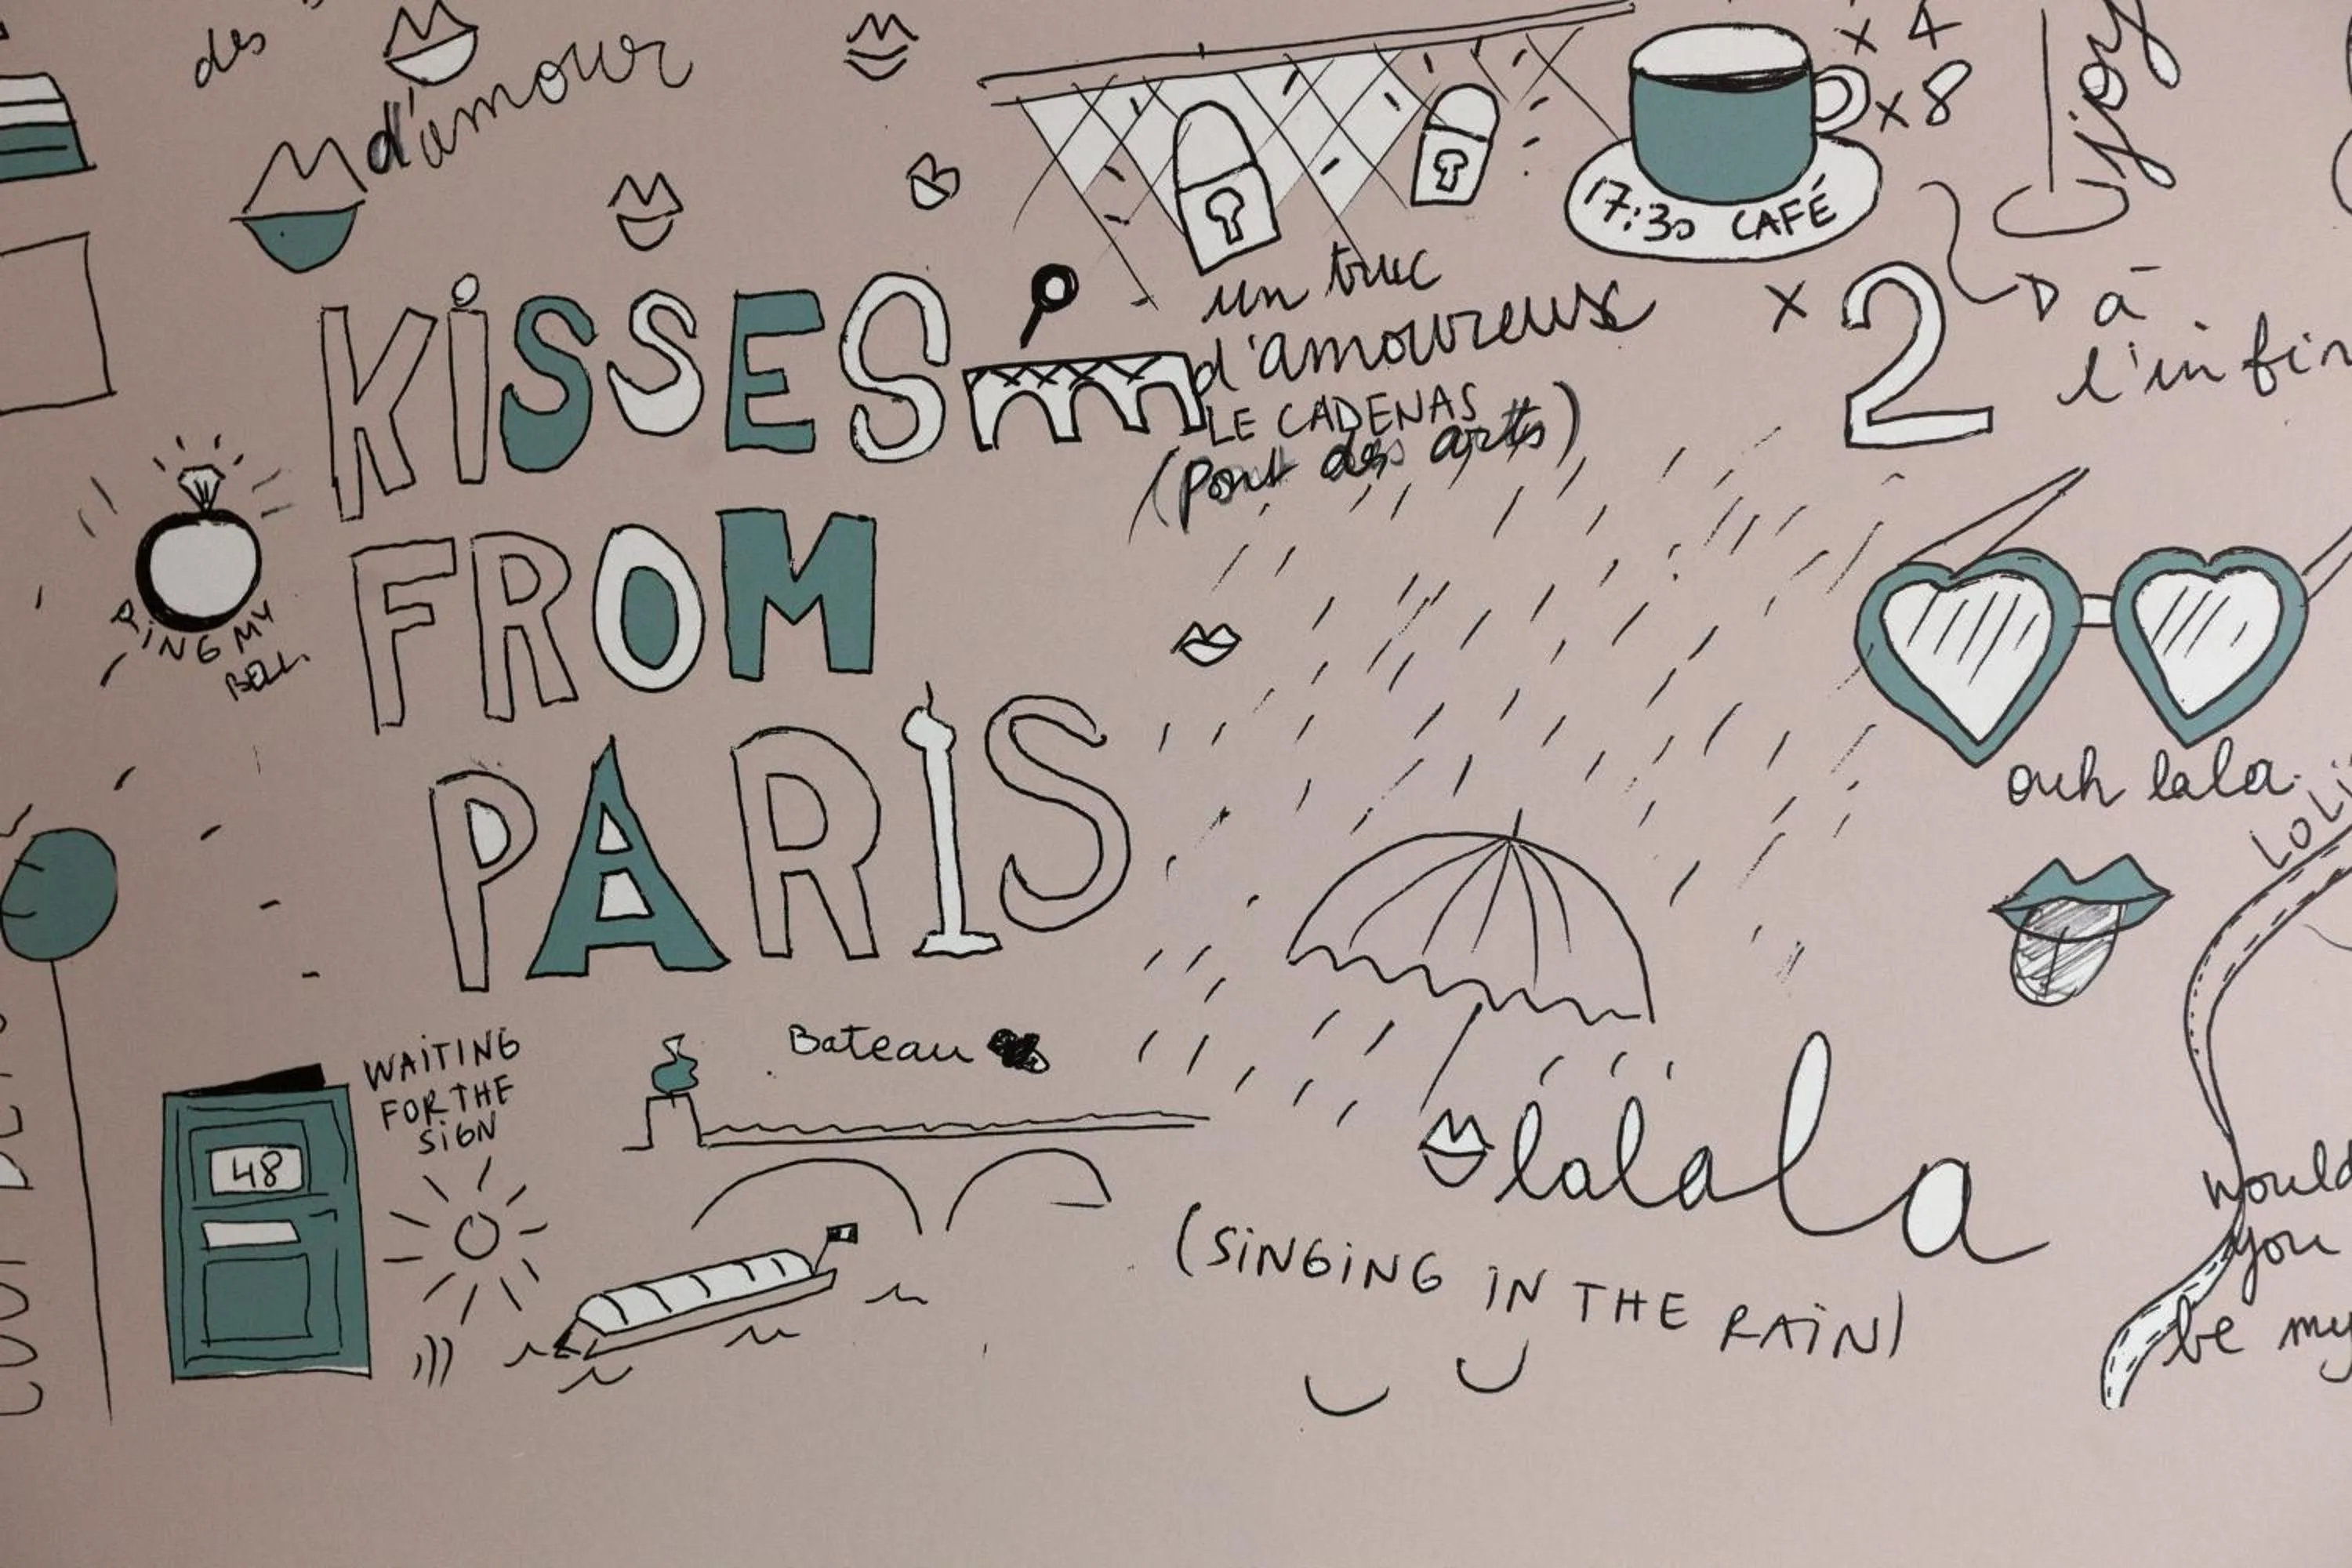 des
d'amour
KiSSES
FROM
PARIS
un truc
d'amoureux
LE CADENAS
(Pont des arts)
17:30 CAFÉ
x 4
x 8
x 2
joy
à
RiNG MY
BELL
ouh lala.
WAITiNG
FOR THE
SiGN
48
Bateau
lalala
(SiNGiNG iN THE RAiN)
would
you
be my